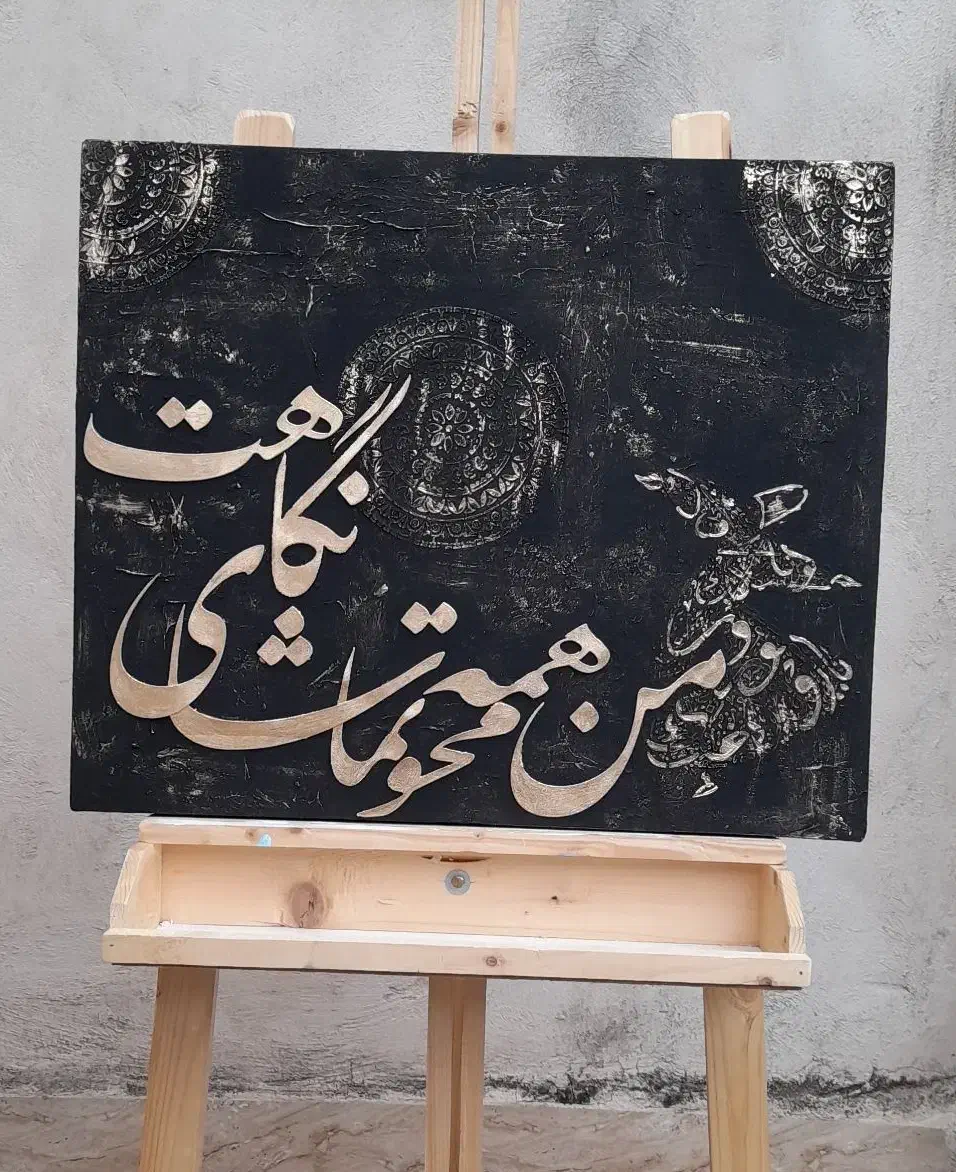 من همه محو تماشای نگاهت